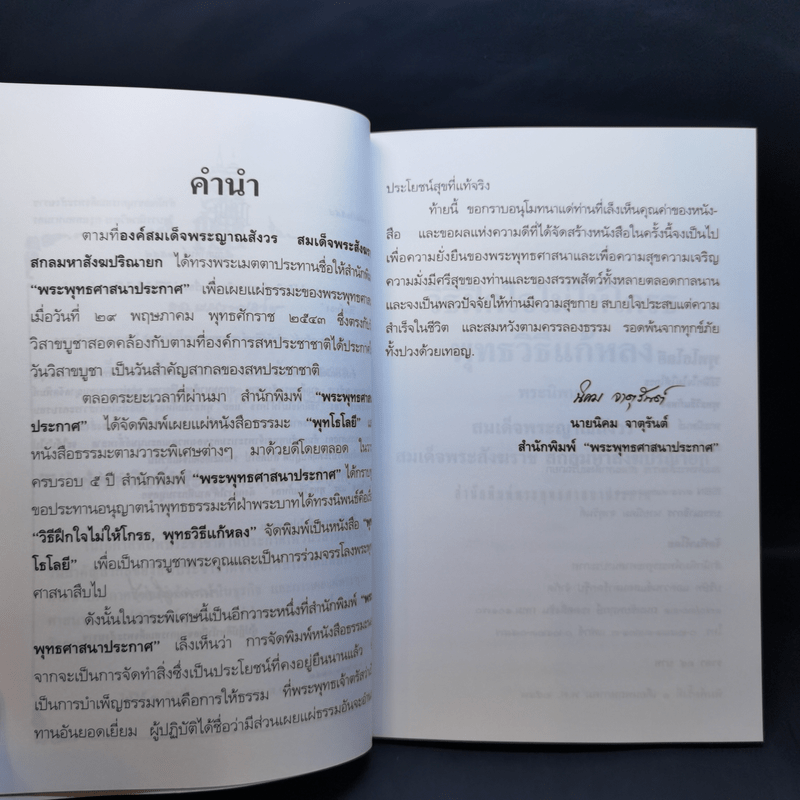 คำนำ
ตามที่องค์สมเด็จพระญาณสังวร สมเด็จพระสังฆ
สกลมหาสังฆปริณายก ได้ทรงพระเมตตาประทานชื่อให้สำนักพิ
“พระพุทธศาสนาประกาศ” เพื่อเผยแผ่ธรรมะของพระพุทธศา
เมื่อวันที่ ๒๙ พฤษภาคม พุทธศักราช ๒๕๔๓ ซึ่งตรงกับ
วิสาขบูชาสอดคล้องกับตามที่องค์การสหประชาชาติได้ประกาศ
วันวิสาขบูชา เป็นวันสำคัญสากลของสหประชาชาติ
ตลอดระยะเวลาที่ผ่านมา สำนักพิมพ์ “พระพุทธศาส
ประกาศ” ได้จัดพิมพ์เผยแผ่หนังสือธรรมะ “พุทโธโลยี” แ
หนังสือธรรมะตามวาระพิเศษต่างๆ มาด้วยดีโดยตลอด ในวา
ครบรอบ ๕ ปี สำนักพิมพ์ “พระพุทธศาสนาประกาศ” ได้กราบ
ขอประทานอนุญาตนำพุทธธรรมะที่ฝ่าพระบาทได้ทรงนิพนธ์คือเรื่
“วิธีฝึกใจไม่ให้โกรธ, พุทธวิธีแก้หลง” จัดพิมพ์เป็นหนังสือ “พุ
โธโลยี” เพื่อเป็นการบูชาพระคุณและเป็นการร่วมจรรโลงพระพุ
ศาสนาสืบไป
ดังนั้นในวาระพิเศษนี้เป็นอีกวาระหนึ่งที่สำนักพิมพ์ “พระ
พุทธศาสนาประกาศ” เล็งเห็นว่า การจัดพิมพ์หนังสือธรรมะน
จากจะเป็นการจัดทำสิ่งซึ่งเป็นประโยชน์ที่คงอยู่ยืนนานแล้ว ยั
เป็นการบำเพ็ญธรรมทานคือการให้ธรรม ที่พระพุทธเจ้าตรัสว่าเป็
ทานอันยอดเยี่ยม ผู้ปฏิบัติได้ชื่อว่ามีส่วนเผยแผ่ธรรมอันจะอำน
ประโยชน์สุขที่แท้จริง
ท้ายนี้ ขอกราบอนุโมทนาแด่ท่านที่เล็งเห็นคุณค่าของหนัง-
สือ และขอผลแห่งความดีที่ได้จัดสร้างหนังสือในครั้งนี้จงเป็นไป
เพื่อความยั่งยืนของพระพุทธศาสนาและเพื่อความสุขความเจริญ
ความมั่งมีศรีสุขของท่านและของสรรพสัตว์ทั้งหลายตลอดกาลนาน
และจงเป็นพลวปัจจัยให้ท่านมีความสุขกาย สบายใจประสบแต่ความ
สำเร็จในชีวิต และสมหวังตามครรลองธรรม รอดพ้นจากทุกข์ภัย
ทั้งปวงด้วยเทอญ.
นิคม จาตุรันต์
นายนิคม จาตุรันต์
สำนักพิมพ์ “พระพุทธศาสนาประกาศ”